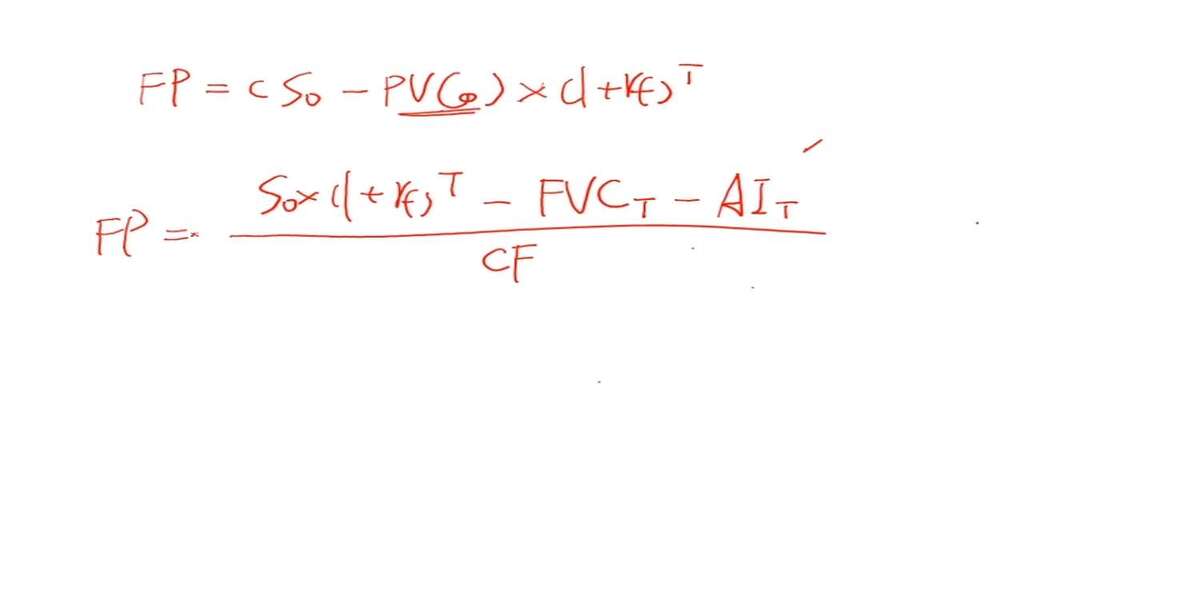 FP = (S₀ - PVC₀) × (1+rf)ᵀ
FP = (S₀×(1+rf)ᵀ - FVC_T - AI_T) / CF